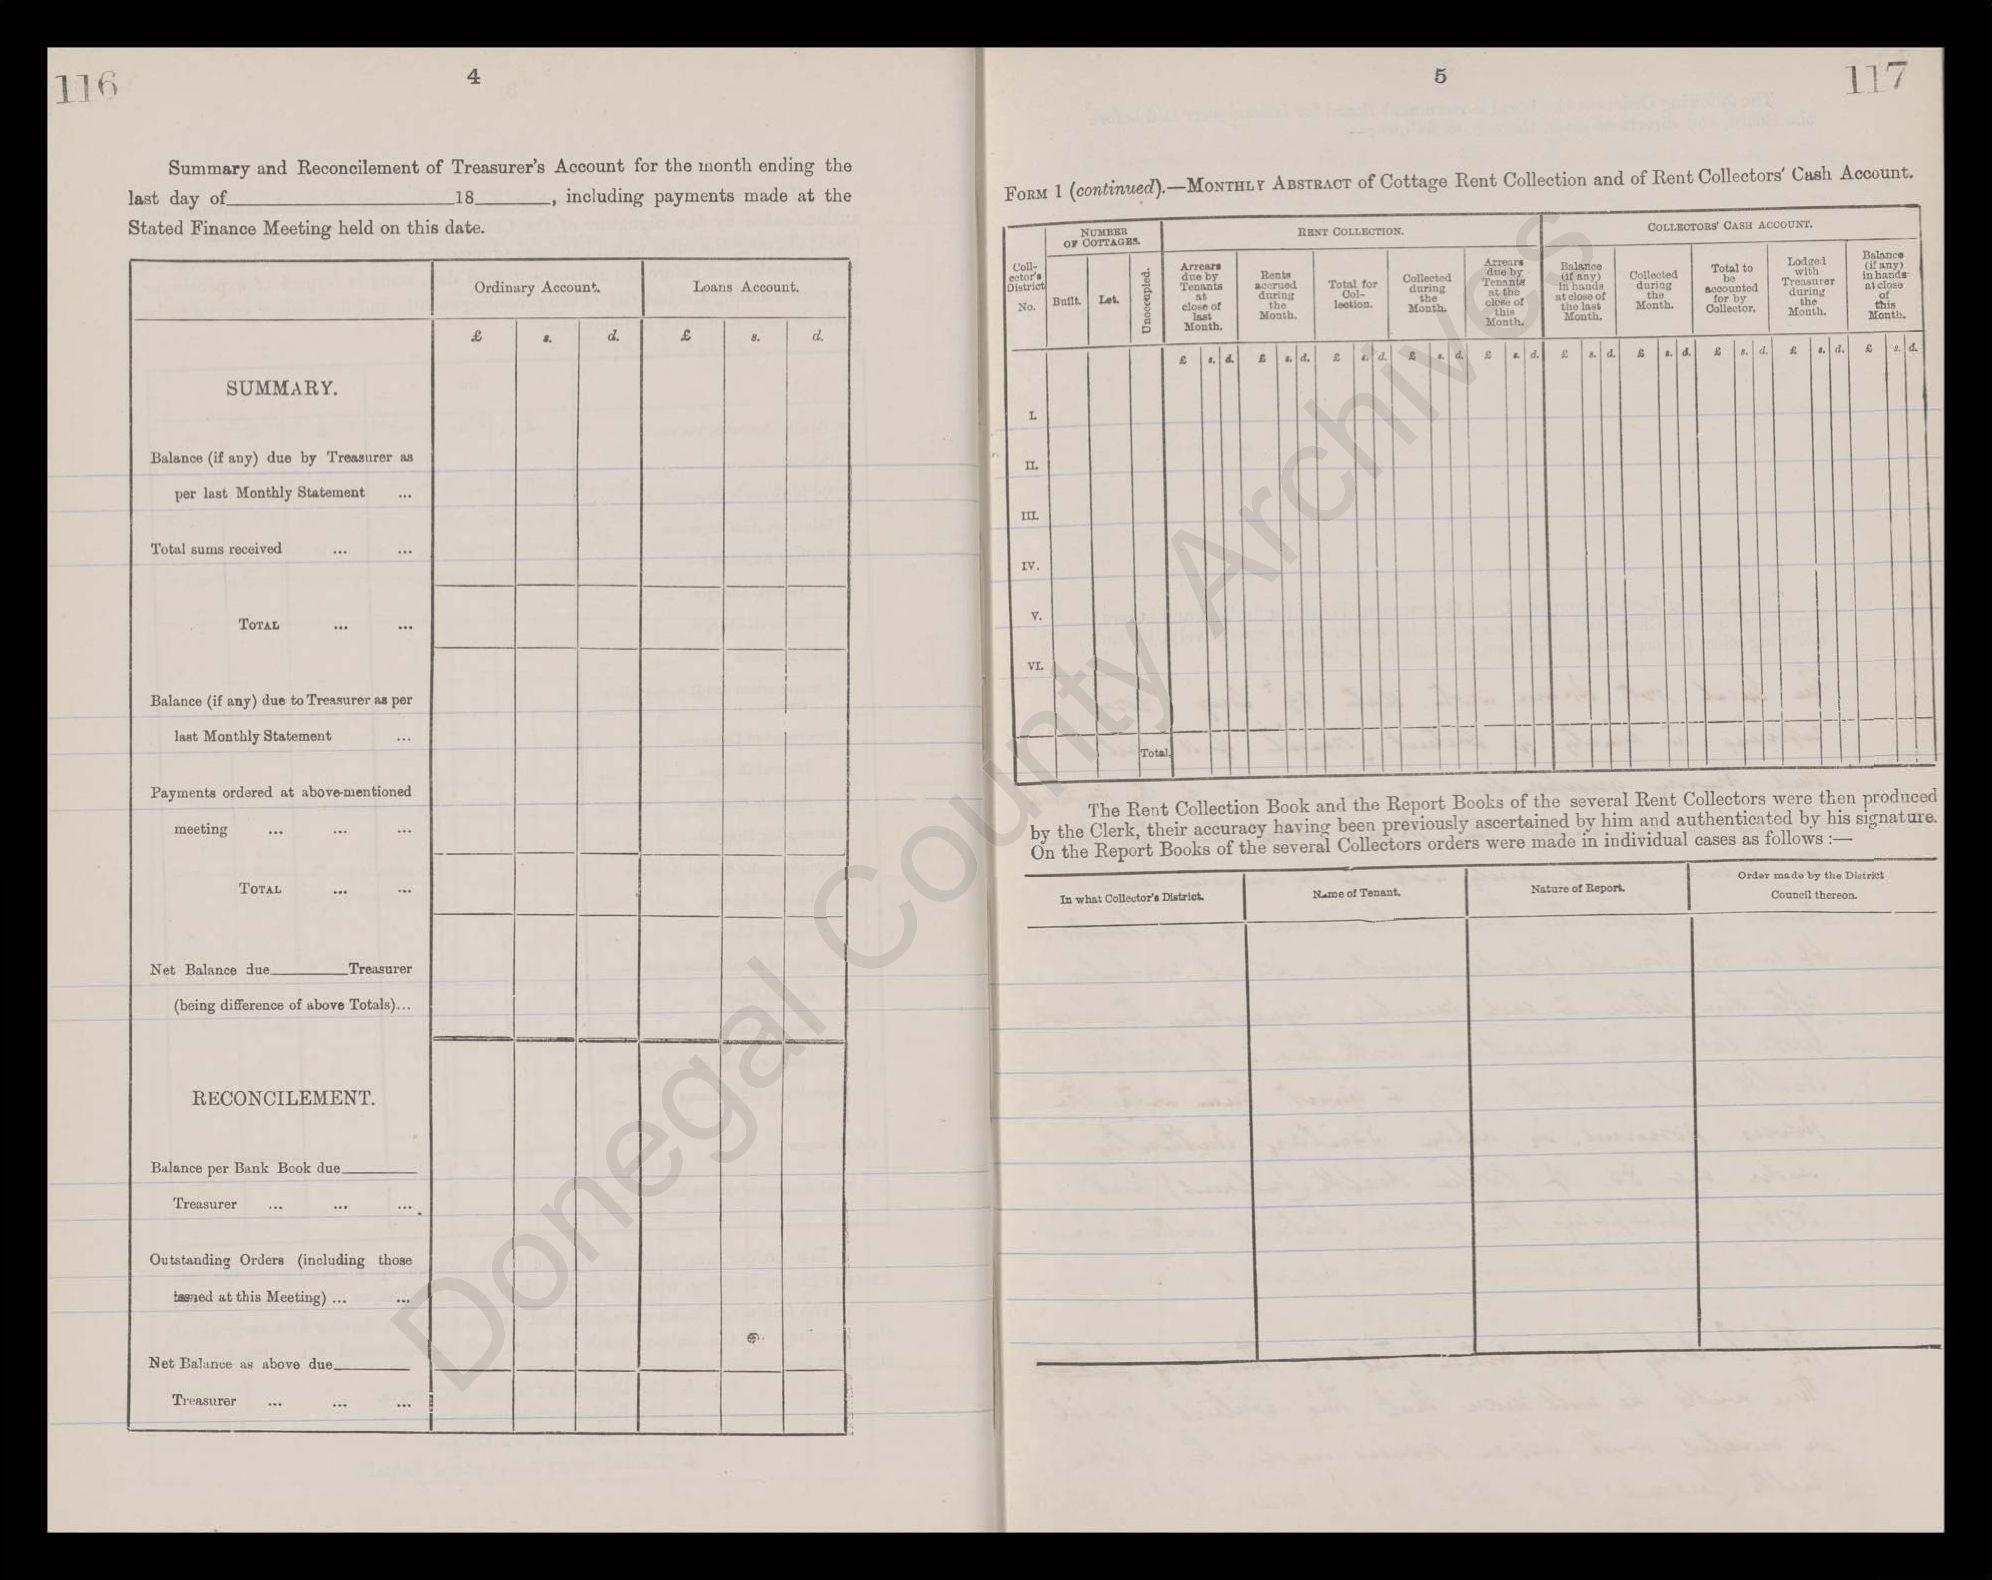 116
4
Summary and Reconcilement of Treasurer's Account for the month ending the
last day of 18 , including payments made at the
Stated Finance Meeting held on this date.
Ordinary Account. Loans Account.
£ s. d. £ s. d.
SUMMARY.
Balance (if any) due by Treasurer as
per last Monthly Statement ...
Total sums received ... ...
TOTAL ... ...
Balance (if any) due to Treasurer as per
last Monthly Statement ...
Payments ordered at above-mentioned
meeting ... ... ...
TOTAL ... ...
Net Balance due Treasurer
(being difference of above Totals)...
RECONCILEMENT.
Balance per Bank Book due
Treasurer ... ... ...
Outstanding Orders (including those
issued at this Meeting) ... ...
Net Balance as above due
Treasurer ... ... ...
5
117
FORM 1 (continued).—MONTHLY ABSTRACT of Cottage Rent Collection and of Rent Collectors' Cash Account.
Coll-
ector's
District
No.
NUMBER
OF COTTAGES.
Built.
Let.
Unoccupied.
RENT COLLECTION.
Arrears
due by
Tenants
at
close of
last
Month.
Rents
accrued
during
the
Month.
Total for
Col-
lection.
Collected
during
the
Month.
Arrears
due by
Tenants
at the
close of
this
Month.
COLLECTORS' CASH ACCOUNT.
Balance
(if any)
in hands
at close of
the last
Month.
Collected
during
the
Month.
Total to
be
accounted
for by
Collector.
Lodged
with
Treasurer
during
the
Month.
Balance
(if any)
in hands
at close
of
this
Month.
£ s. d. £ s. d. £ s. d. £ s. d. £ s. d. £ s. d. £ s. d. £ s. d. £ s. d. £ s. d.
I.
II.
III.
IV.
V.
VI.
Total
The Rent Collection Book and the Report Books of the several Rent Collectors were then produced
by the Clerk, their accuracy having been previously ascertained by him and authenticated by his signature.
On the Report Books of the several Collectors orders were made in individual cases as follows :—
In what Collector's District.
Name of Tenant.
Nature of Report.
Order made by the District
Council thereon.
Donegal County Archives